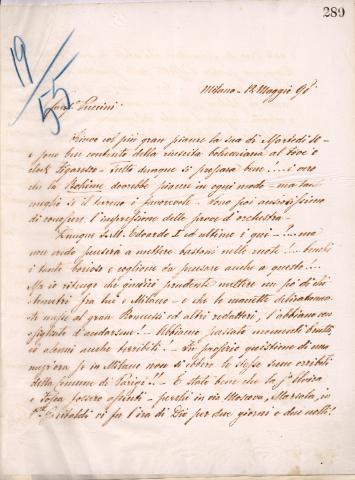 289
19/55
Milano - 12 Maggio 98.
Car.º Puccini!
Ricevo col più gran piacere la sua di Martedì 10 -
e sono ben contento della riuscita bohémiana al five o'
clock Figaresco - tutto dunque si prepara bene ....! è vero
che la Bohème dovrebbe piacere in ogni modo - ma tanto
meglio se il terreno è favorevole - Sono poi ansiosissimo
di conoscere l'impressione delle prove d'orchestra -
Dunque S. M. Edoardo I ed ultimo è qui - !... ma
non credo penserà a mettere bastoni nelle ruote !... benchè
è tanto borioso e vogliono da pensare anche a questo !...
Ma io ritengo che giudizi prudenti mettere un po' di chi
tra lui e Milano - e che le manette
al gran Romussi ed altri redattori, l'abbiano con
sigliato d'andarsene! - Abbiamo passato momenti brutti,
ed alcuni anche terribili! - Fu proprio questione di una
mezz'ora se in Milano non si ebbero le stesse scene orribili
della Comune di Parigi!! - È stato bene che la Sª Elvira
e Fosca fossero assenti - perchè in via Moscova, Marsala, in
Pª Garibaldi vi fu l'ira di Dio per due giorni e due notti!